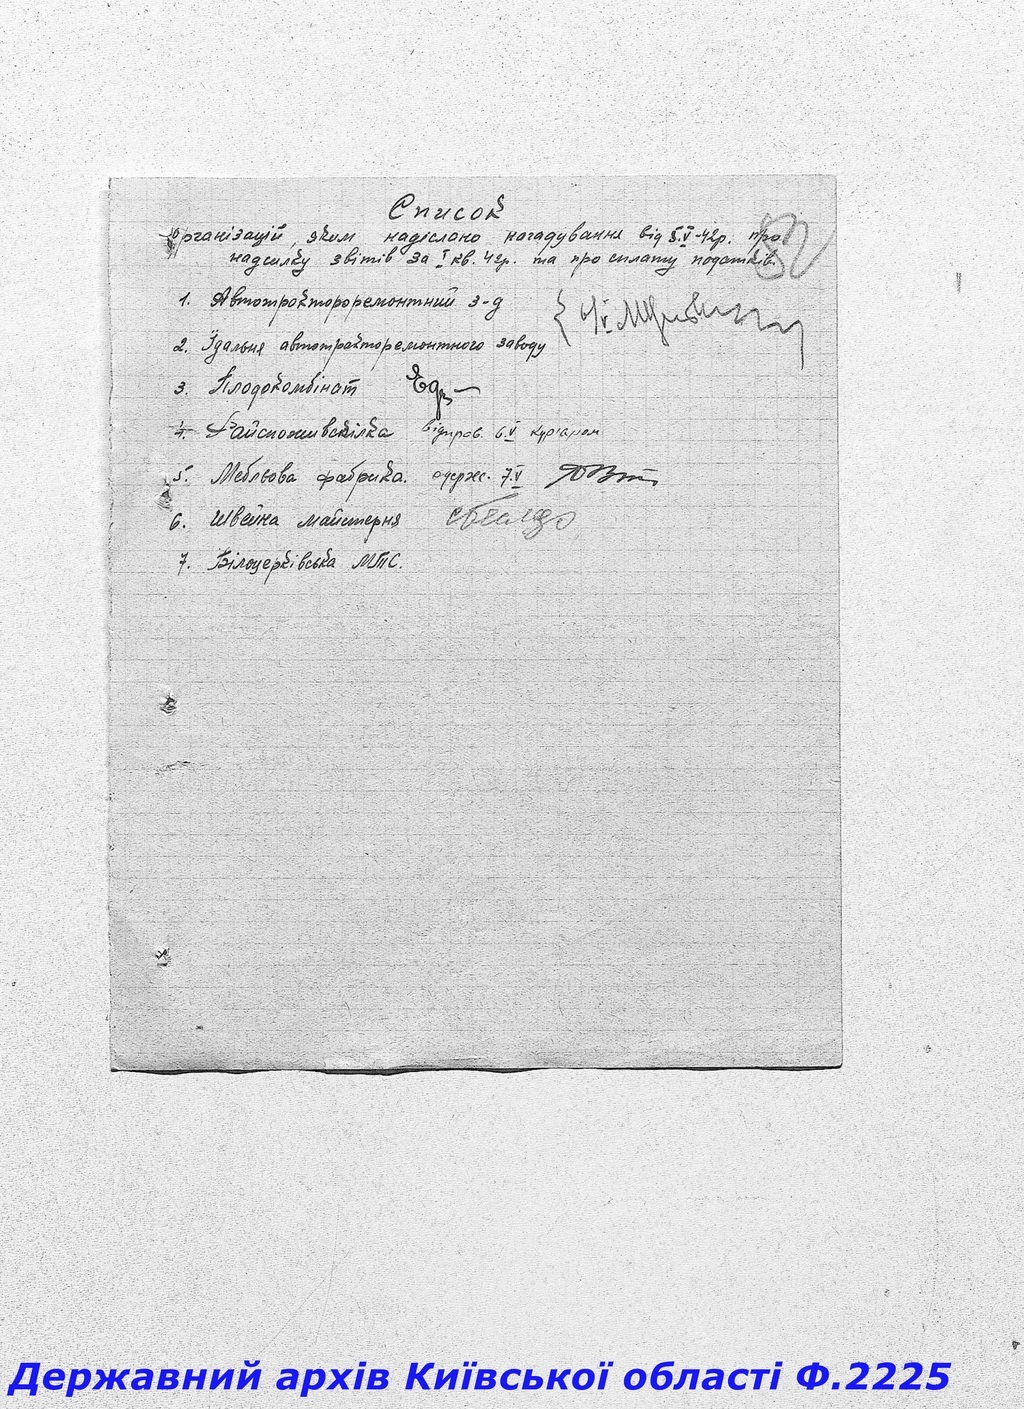 Список
Організацій, яким надіслано нагадування від 5.V-42р. про
надсилку звітів за I кв. 42р. та про сплату податків.
1. Автотрактороремонтний з-д
6/V
2. Їдальня автотракторемонтного заводу
3. Плодокомбінат
4. Райспоживспілка відправ. 6.V кур'єром
5. Мебльова фабрика. одерж. 7.V
6. Швейна майстерня
7. Білоцерківська МТС.
Державний архів Київської області Ф.2225